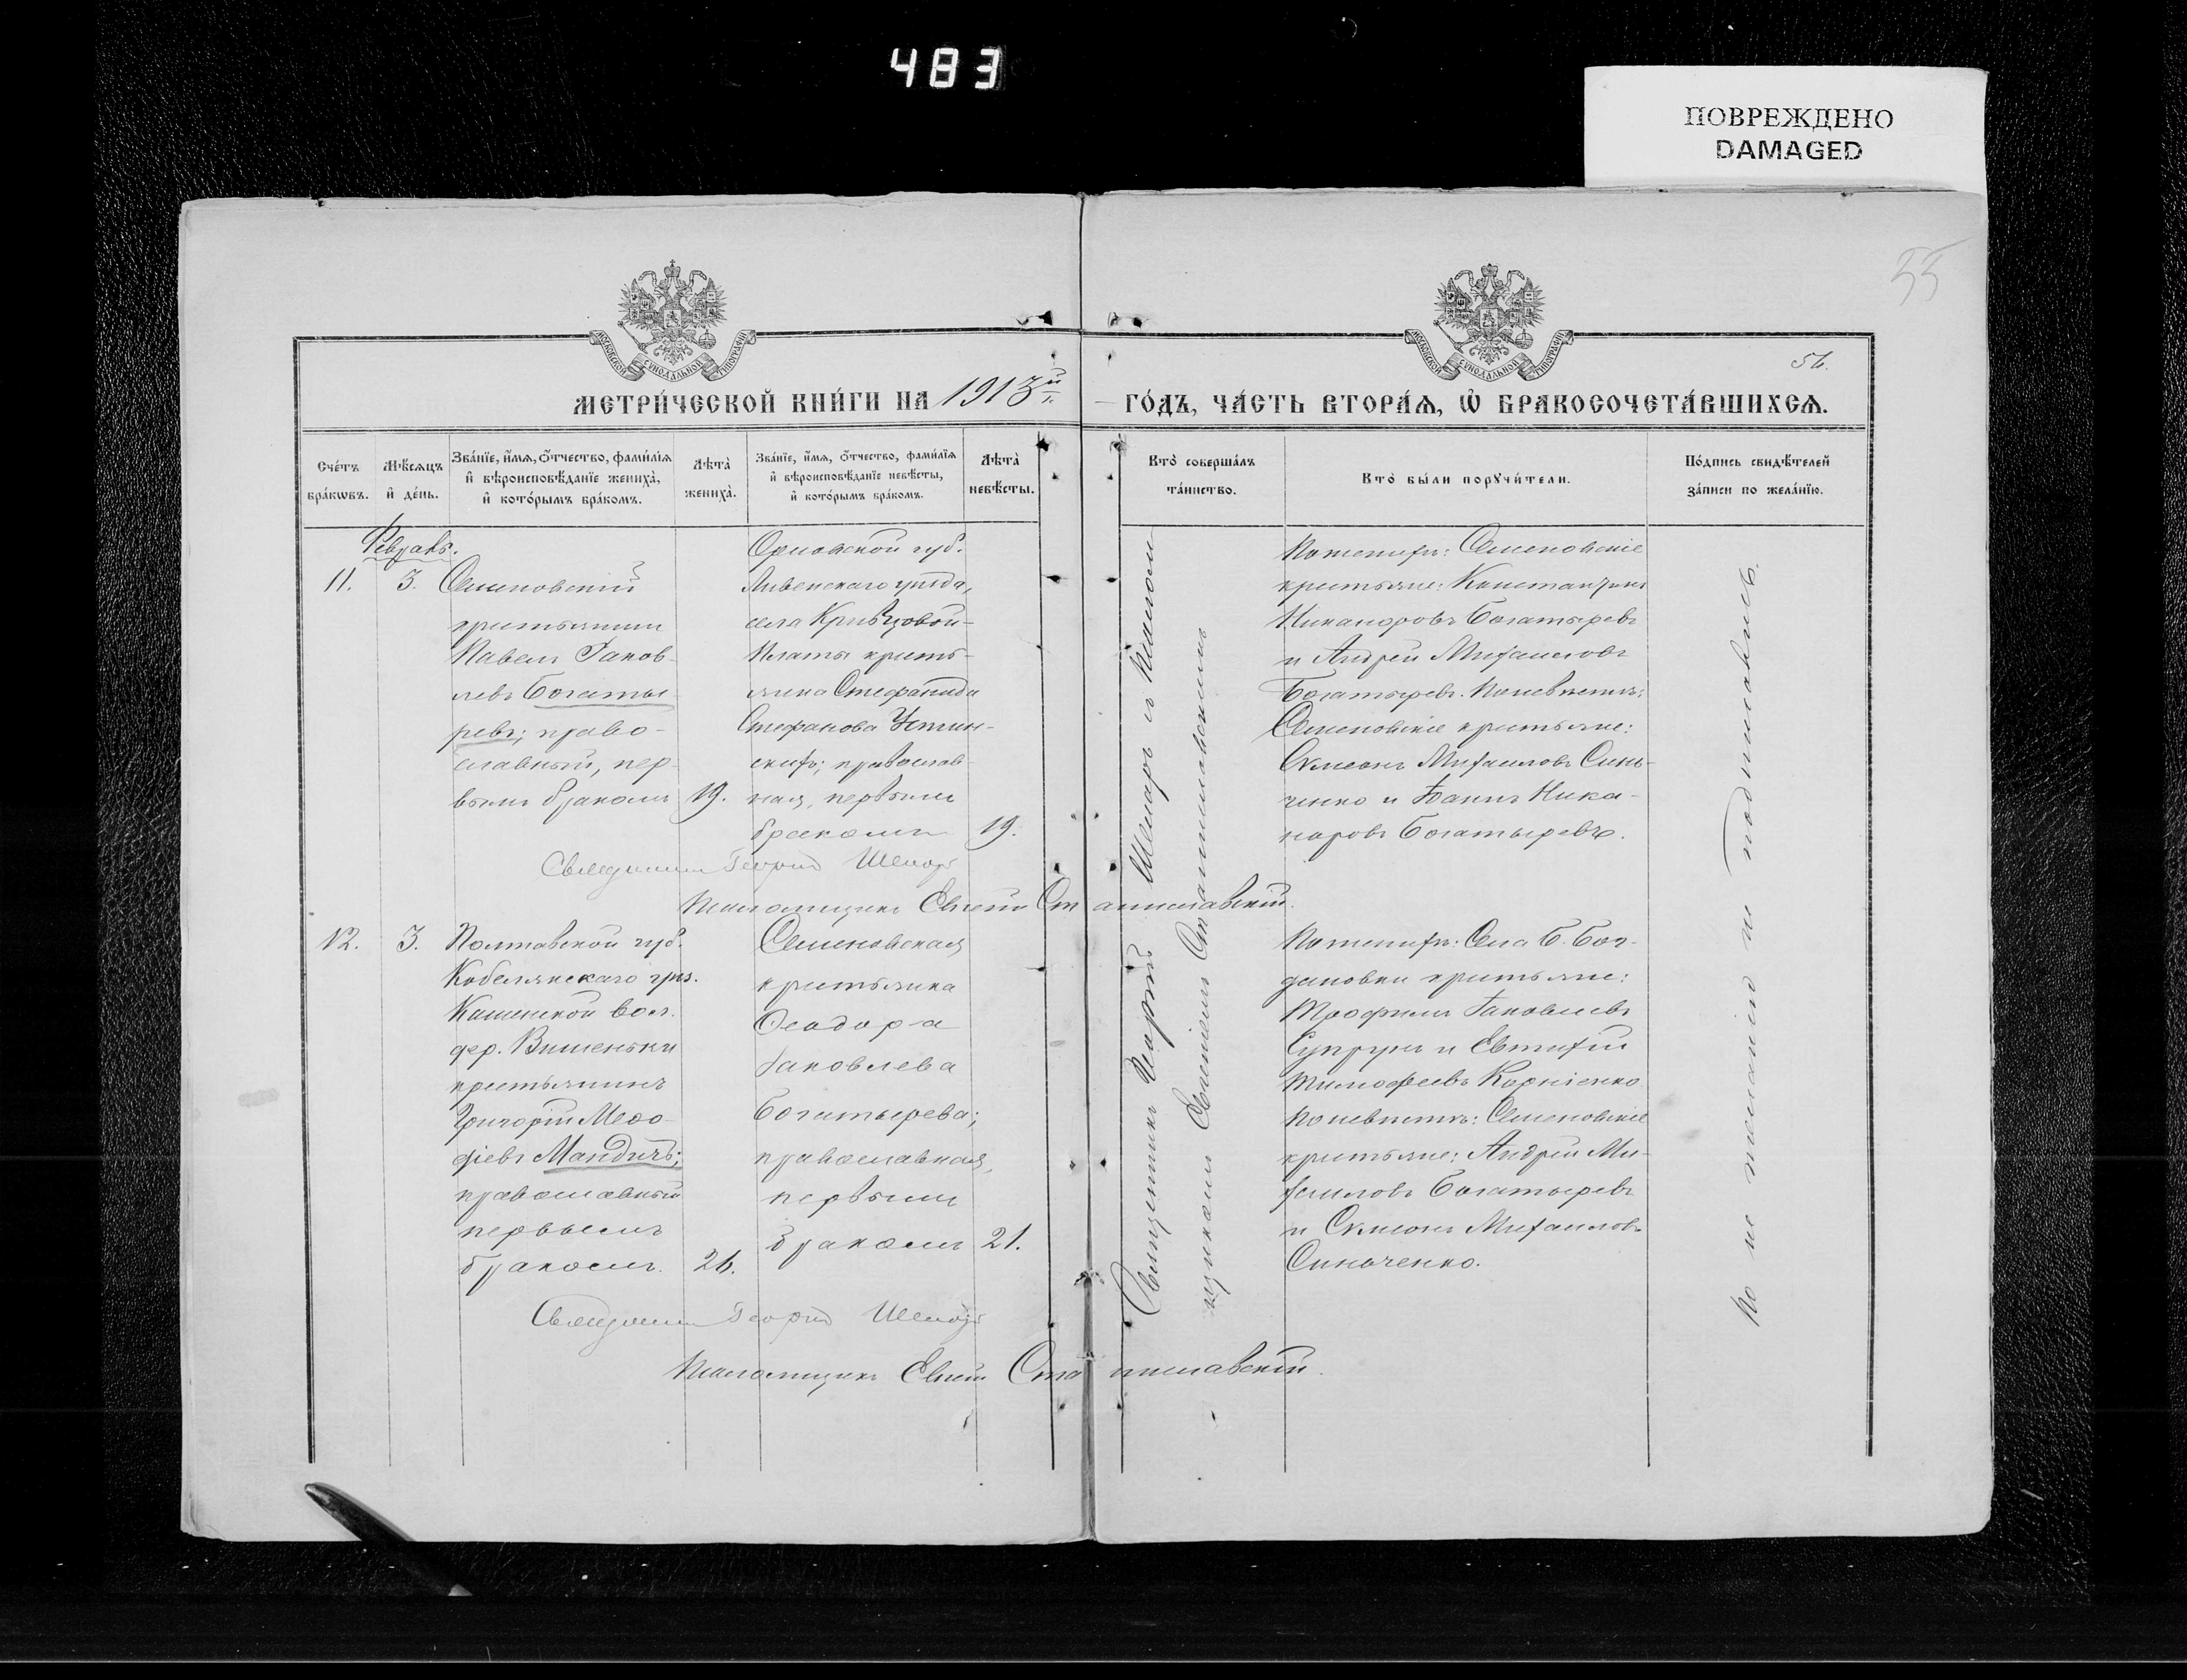 483
ПОВРЕЖДЕНО
DAMAGED
55
56.
МОСКОВСКОЙ СѴНОДАЛЬНОЙ ТИПОГРАФІИ
МОСКОВСКОЙ СѴНОДАЛЬНОЙ ТИПОГРАФІИ
МЕТРИ́ЧЕСКОЙ КНИ́ГИ НА 1913й г.
ГО́ДЪ, ЧА́СТЬ ВТОРА́Ѧ, Ѡ҆ БРАКОСОЧЕТА́ВШИХСѦ.
Сче́тъ бра́кѡвъ.
Мѣ́сяцъ и҆ де́нь.
Зва́нїе, и҆́мѧ, ѻ҆́тчество, фами́лїѧ
и҆ вѣроисповѣ́данїе жениха̀,
и҆ кото́рымъ бра́комъ.
Лѣта̀ жениха̀.
Зва́нїе, и҆́мѧ, ѻ҆́тчество, фами́лїѧ
и҆ вѣроисповѣ́данїе невѣ́сты,
и҆ кото́рымъ бра́комъ.
Лѣта̀ невѣ́сты.
Кто̀ соверша́лъ
та́инство.
Кто̀ бы́ли порꙋчи́тели.
По́дпись свидѣ́телей
за́писи по жела́нїю.
Февраль.
11.
3.
Семеновскій
крестьянинъ
Павелъ Іаков-
левъ Богаты-
ревъ; право-
славный, пер-
вымъ бракомъ
19.
Орловской губ.
Ливенскаго уѣзда,
села Кривцовой-
Платы кресть-
янка Стефанида
Стефанова Устин-
скихъ; православ-
ная, первымъ
бракомъ
19.
Священникъ Георгій Шемаръ и Псаломщикомъ Евгеніемъ Станиславскимъ
По женихѣ: Семеновскіе
крестьяне: Константинъ
Никаноровъ Богатыревъ
и Андрей Михаиловъ
Богатыревъ. По невѣстѣ:
Семеновскіе крестьяне:
Симеонъ Михаиловъ Синь-
ченко и Іоаннъ Ника-
норовъ Богатыревъ.
По не желанію не подписались.
Священникъ Георгій Шемаръ
Псаломщикъ Евгеній Станиславскій.
12.
3.
Полтавской губ.
Кобелякскаго уѣз.
вол.
дер. Вишеньки
крестьянинъ
Григорій Меѳо-
діевъ Мандичъ;
православный
первымъ
бракомъ.
26.
Семеновская
крестьянка
Ѳеодора
Іаковлева
Богатырева;
православная,
первымъ
бракомъ
21.
По женихѣ: Села Б. Бог-
дановки крестьяне:
Трофимъ Іаковлевъ
Супрунъ и Евтихій
Тимофеевъ Корніенко
По невѣстѣ: Семеновскіе
крестьяне: Андрей Ми-
хаиловъ Богатыревъ
и Симеонъ Михаиловъ
Синьченко.
Священникъ Георгій Шемаръ
Псаломщикъ Евгеній Станиславскій.